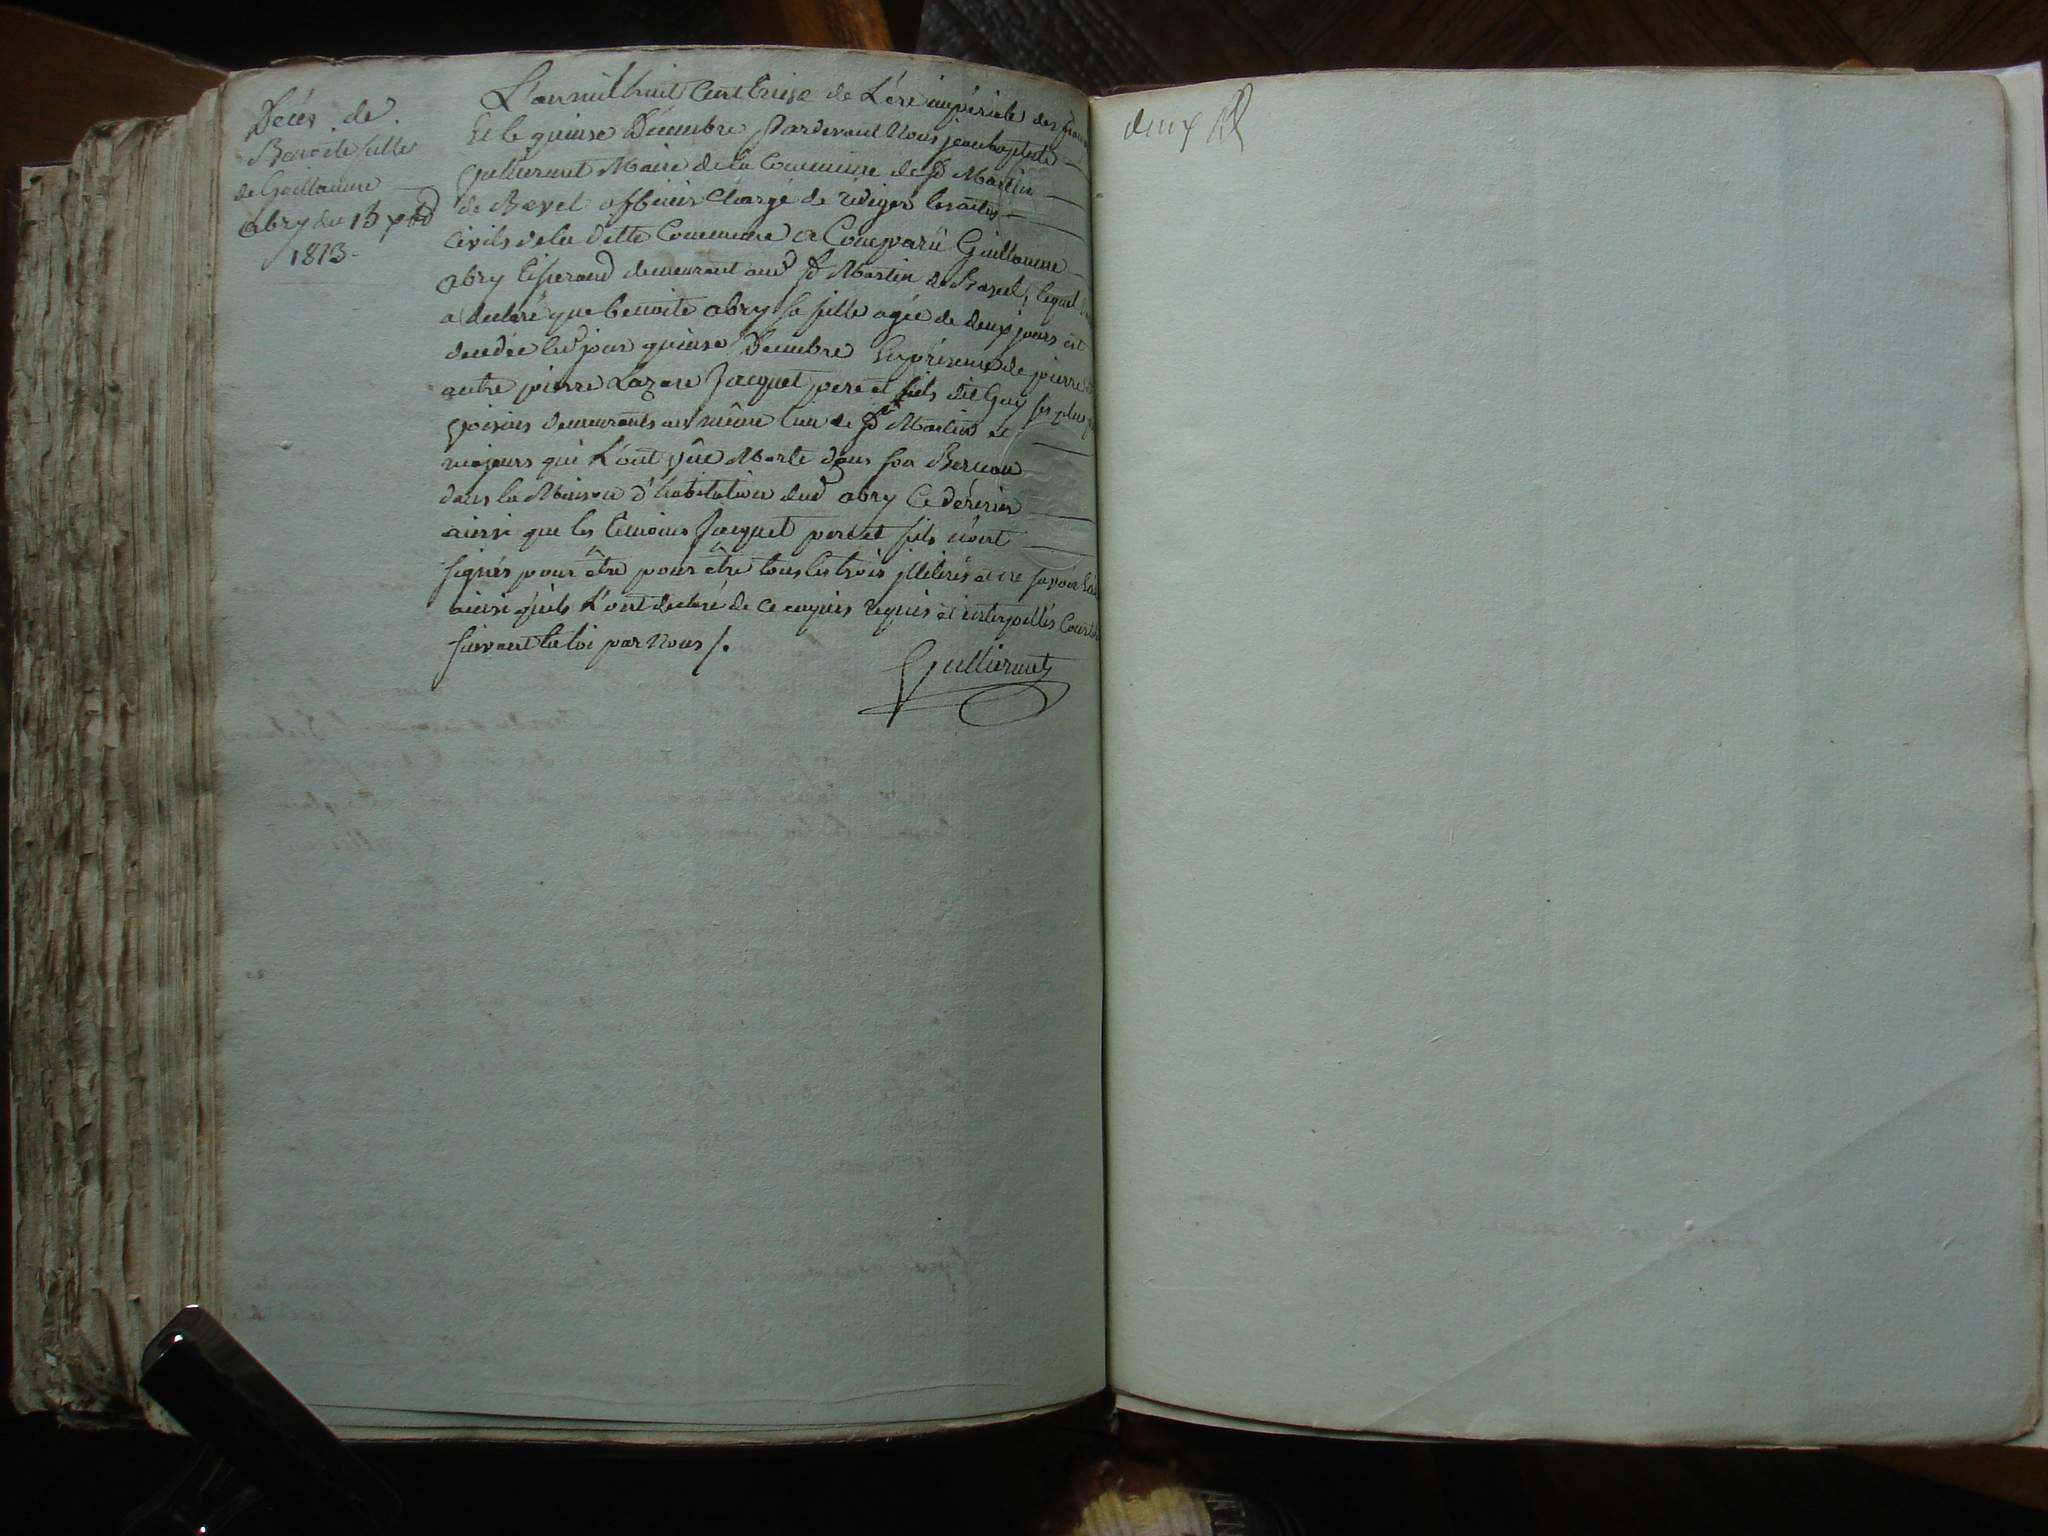 Décès de
Benoite fille
de Guillaume
abry du 15 xbre
1813
L'an mil huit Cent treise de L'ére impériale des
Et le quinse Décembre pardevant Nous jean baptiste
Gulliermet Maire de la Commune de St Martin
de Bavel officier Chargé de rédiger les actes
Civils de la ditte Commune a Comparü Guillaume
abry tisserand demeurant aud St Martin de Bavel, lequel
a declaré que benoite abry sa fille agée de deux jours est
decedée led jour quinse Decembre En présence de pierre
autre pierre Lazare Jacquet pere et fils dit Guy ses plus
voisins demeurants au même lieu de St Martin et
majeurs qui L'ont vûe Morte dans son Berceau
dans la Maison d'habitation dud abry Ce dernier
ainsi que les temoins Jacquet pere et fils n'ont
signés pour être pour être tous les trois illitirés et ne savoir
ainsi qu'ils L'ont declaré de ce enquis requis et interpellés
suivant la loi par Nous /.
Gulliermet
deux